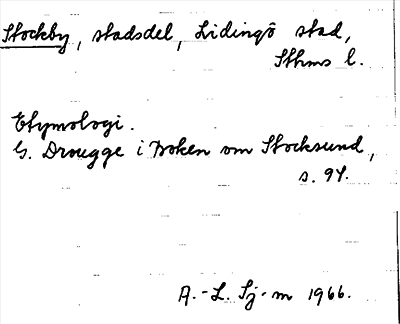 Stockby, stadsdel, Lidingö stad,
Sthms l.
Etymologi.
G. Drougge i Boken om Stocksund,
s. 94.
A.-L. Sj-m 1966.